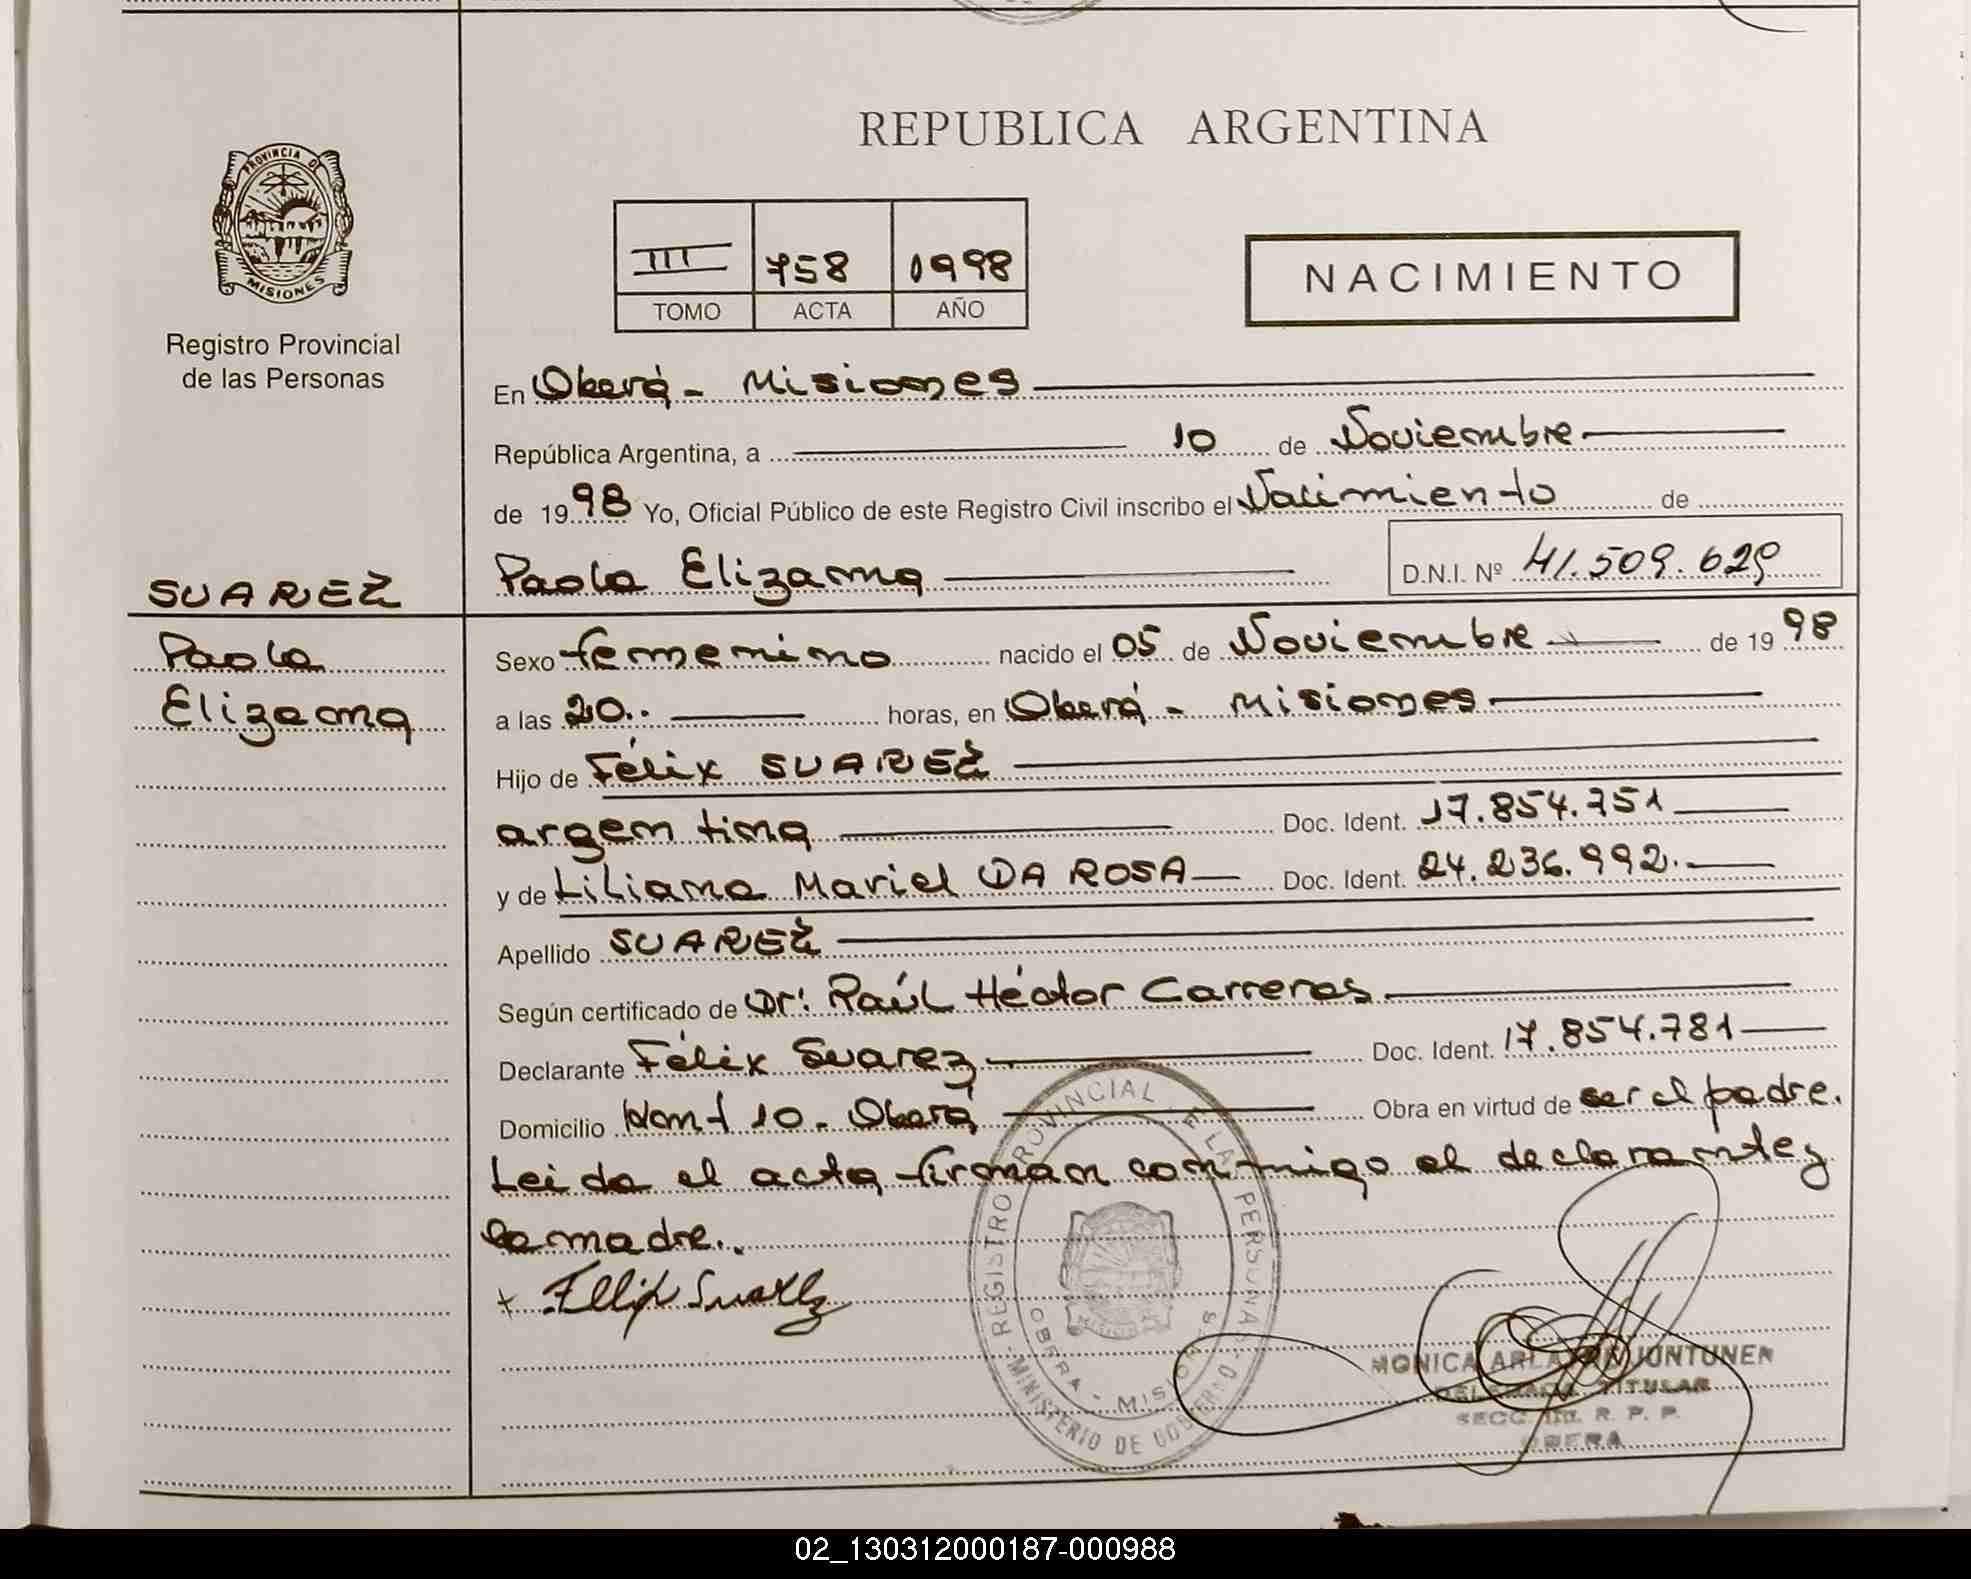 REPUBLICA ARGENTINA
PROVINCIA D
MISIONES
Registro Provincial
de las Personas
III 758 1998
TOMO ACTA AÑO
NACIMIENTO
En Oberá - Misiones
República Argentina, a 10 de Noviembre
de 1998 Yo, Oficial Público de este Registro Civil inscribo el Nacimiento de
SUAREZ
Paola Elizama D.N.I. Nº 41.509.629
Paola
Elizama
Sexo femenino nacido el 05 de Noviembre de 1998
a las 20.. horas, en Oberá - Misiones
Hijo de Félix SUAREZ
argentina Doc. Ident. 17.854.751
y de Liliana Mariel DA ROSA Doc. Ident. 24.236.992.
Apellido SUAREZ
Según certificado de Dr: Raúl Héctor Carreras
Declarante Félix Suarez Doc. Ident. 17.854.781
Domicilio 10. Oberá Obra en virtud de ser el padre.
Leida el acta firman conmigo el declarante y
la madre..
REGISTRO PROVINCIAL E LAS PERSONAS - MINISTERIO DE GOBIERNO -
OBERA - MISIONES
MONICA JUNTUNEN
TITULAR
SECC. R. P. P.
OBERA
02_130312000187-000988